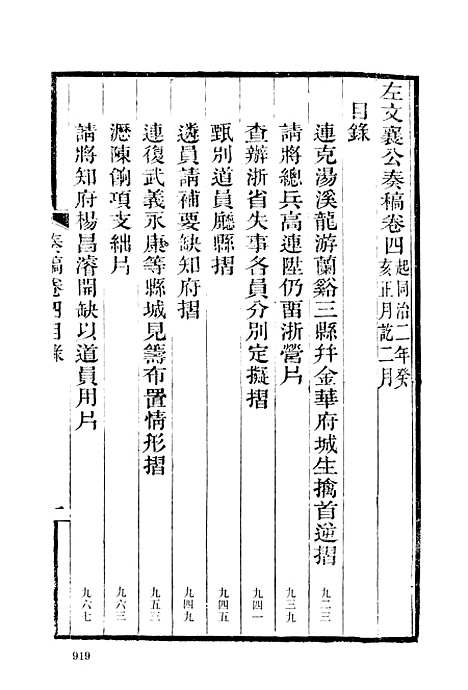 左文襄公奏稿卷四起同治二年癸
亥正月訖二月
目錄
連克湯溪龍游蘭谿三縣幷金華府城生擒首逆摺 九二三
請將總兵高連陞仍畱浙營片 九三九
查辦浙省失事各員分別定擬摺 九四一
甄別道員廳縣摺 九四五
遴員請補要缺知府摺 九四九
連復武義永康等縣城見籌布置情形摺 九五三
瀝陳餉項支絀片 九六三
請將知府楊昌濬開缺以道員用片 九六七
奏稿卷四目錄
一
919